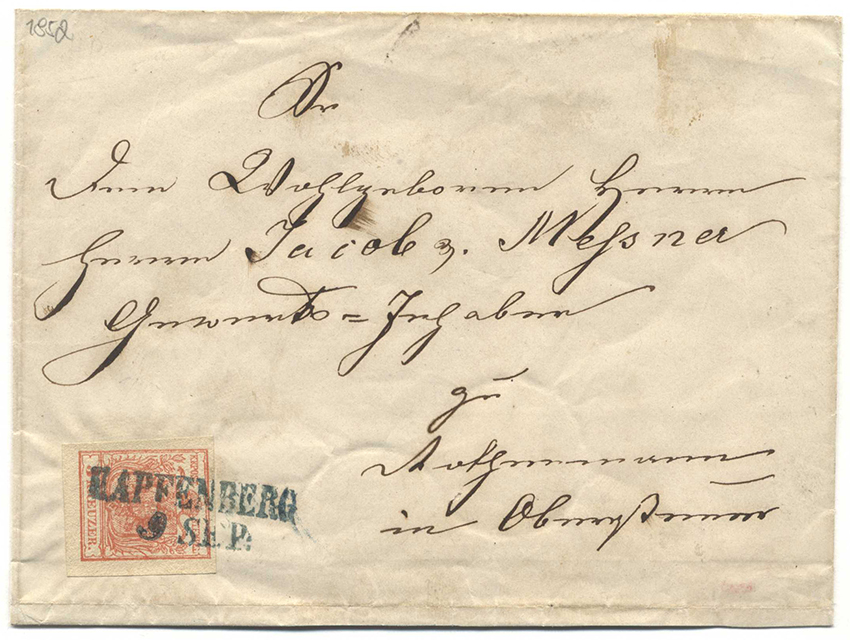 1852
Sr
Dem Wohlgeboren Herrn
Herrn Jacob v. Meßner
Gewerks=Inhaber
zu
Rothenmann
in Obersteier
KAPFENBERG
9 SEP.
KREUZER.